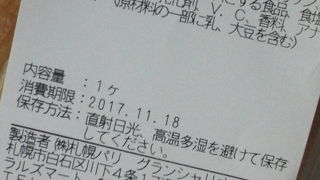 化剤、V.C、香料、アナ
(原材料の一部に乳、大豆を含む)
内容量 :1ヶ
消費期限:2017.11.18
保存方法:直射日光、高温多湿を避けて保存
してください。
製造者 ㈱札幌パリ グランシャリ
札幌市白石区川下4条1
ラルズマート